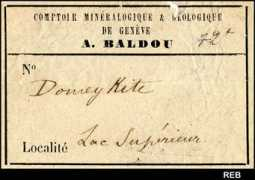 COMPTOIR MINÉRALOGIQUE & GÉOLOGIQUE
DE GENÈVE
A. BALDOU
No
Domeykite
Localité Lac Supérieur
REB